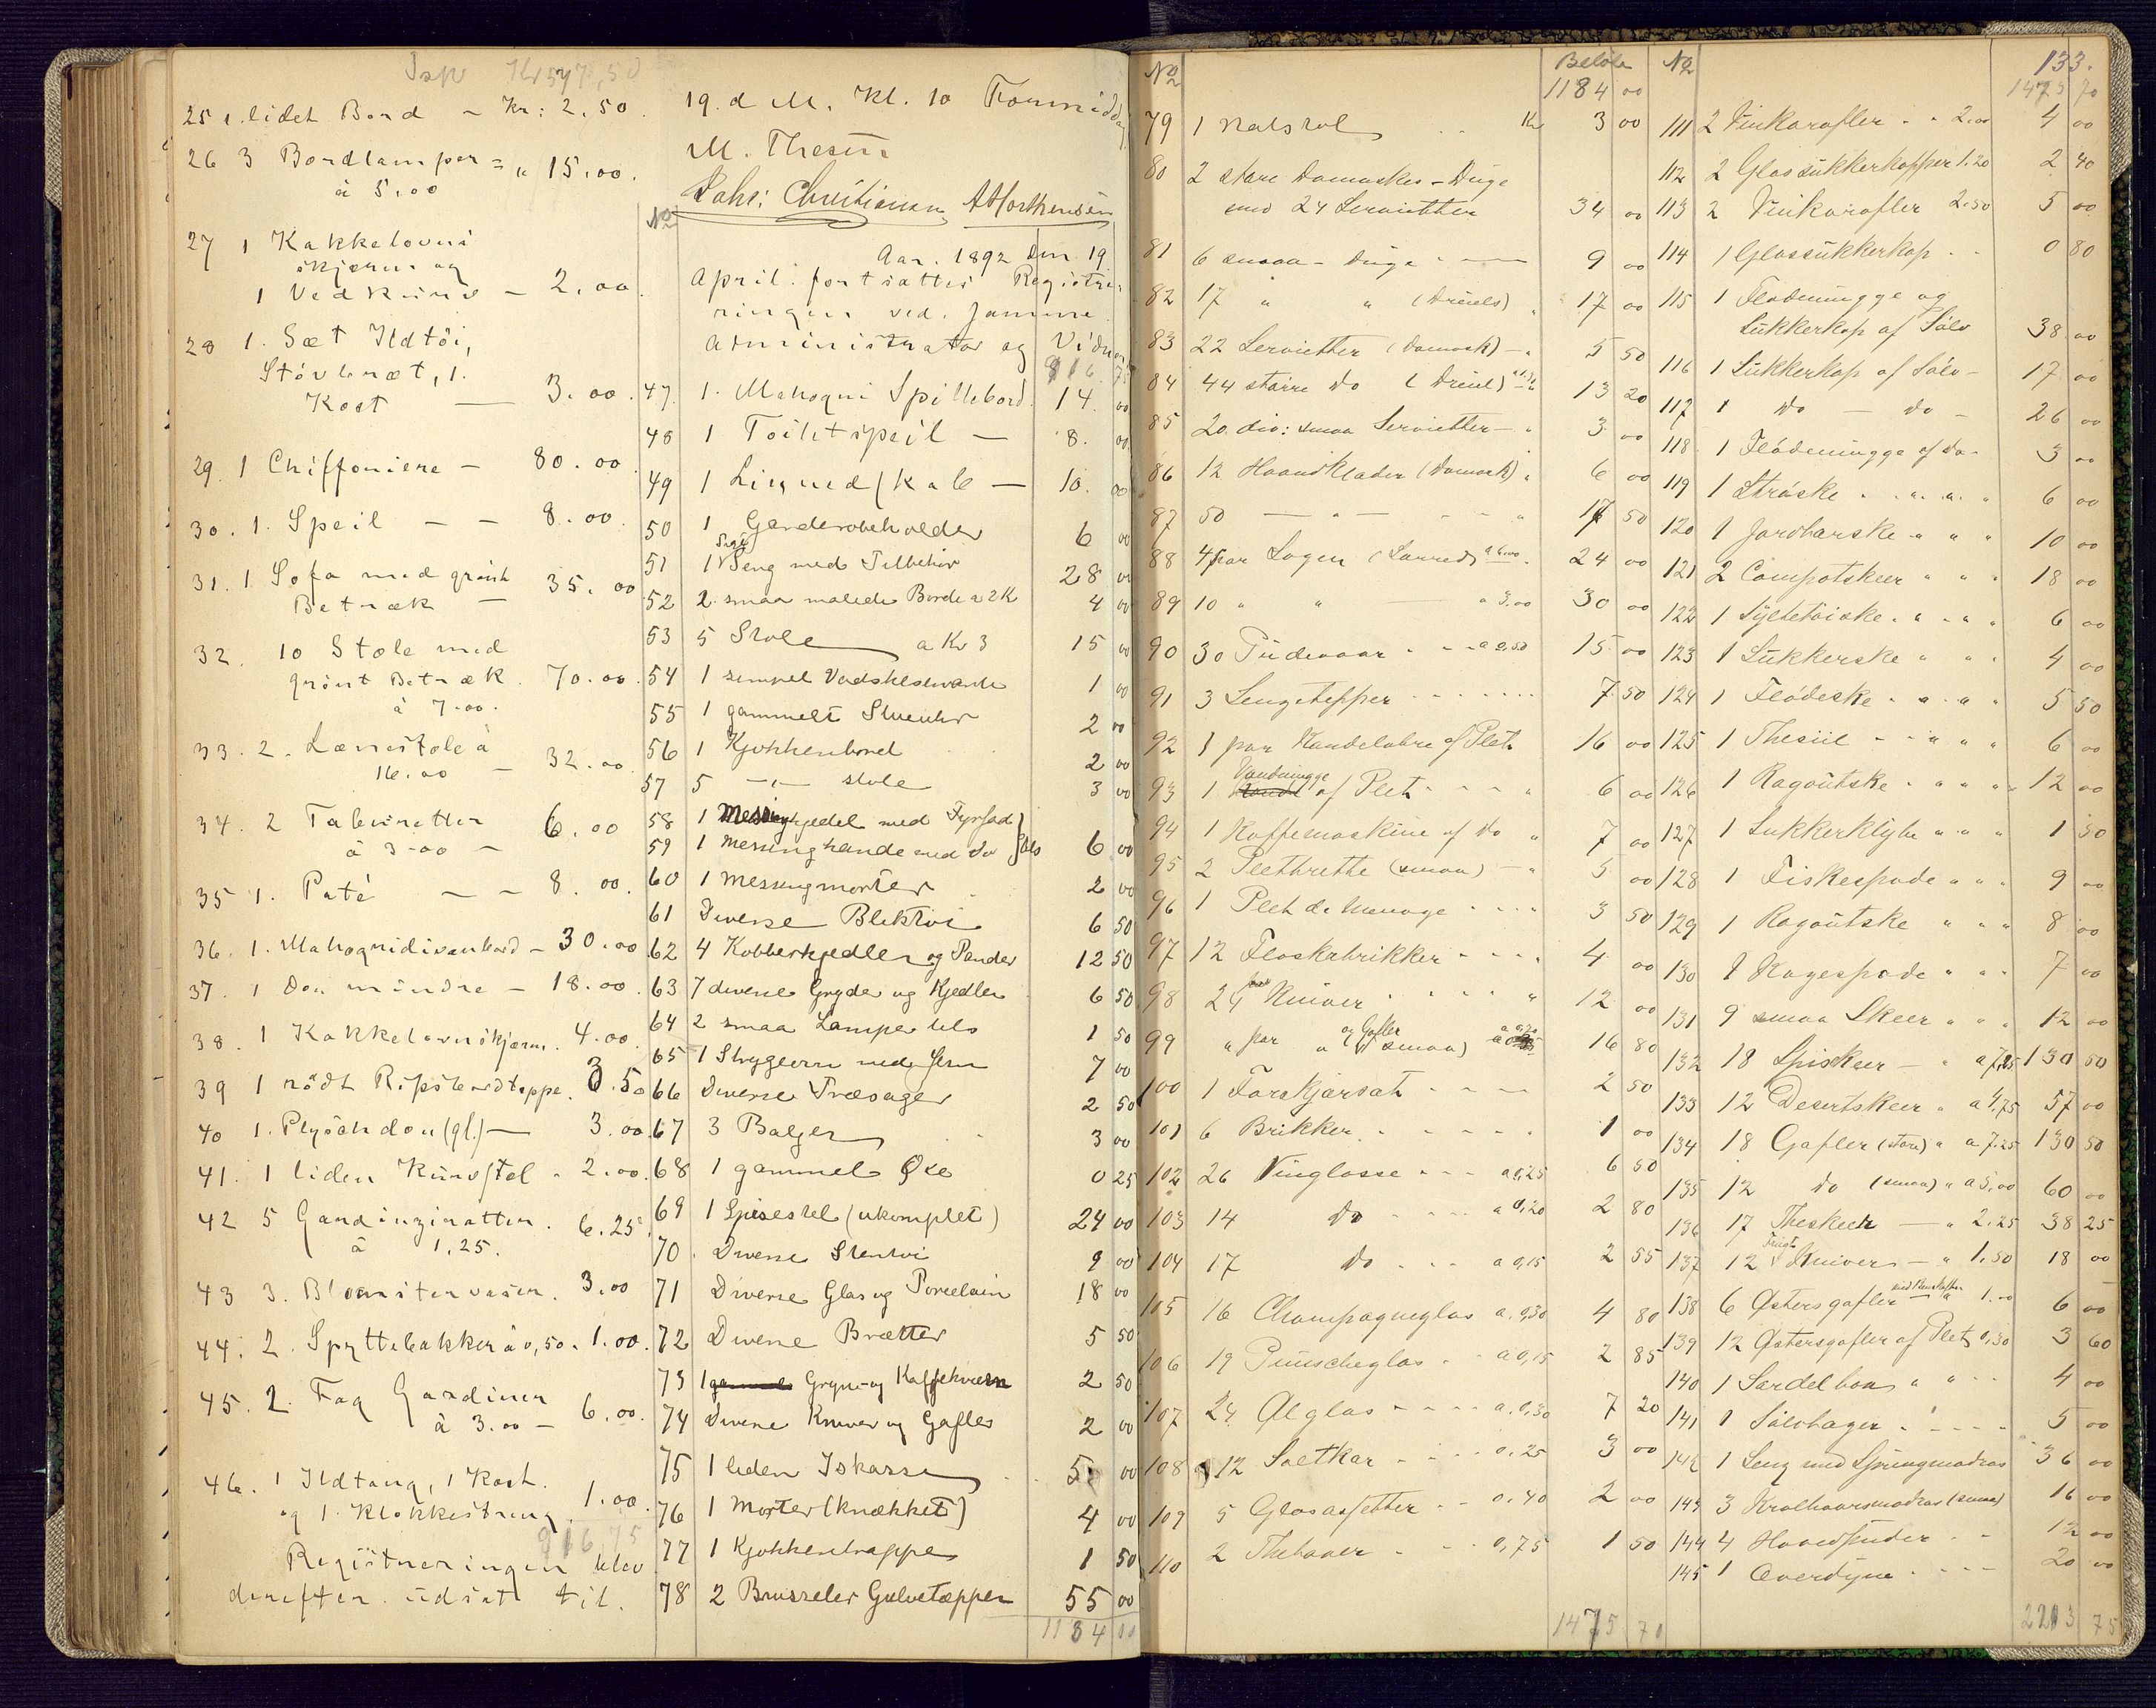 Tsp Kr 597,50
25 1. lidet Bord - Kr: 2.50.
26 3 Bordlamper = " 15.00.
à 5.00
27 1 Kakkelovns
skjærm og
1 Vedkurv - 2.00.
28 1. Sæt Ildtöi,
Stövbræt, 1.
Kost — 3.00.
29. 1 Chiffoniere - 80.00
30. 1. Speil - - 8.00.
31. 1. Sofa med grönt
Betræk - 35.00
32. 10 Stole med
grönt Betræk. 70.00.
à 7.00.
33. 2. Lænestole à
16.00 - 32.00
34. 2 Taburetter 6.00
à 3.00 -
35 1. Puté - - 8.00.
36. 1. Mahognidivanbord - 30.00
37. 1 Do mindre - 18.00.
38. 1 Kakkelovnskjærm. 4.00.
39 1 rödt Ripsbordteppe. 3.50
40 1. Plysch do (gl.) — 3.00
41. 1 liden Kurvstol - 2.00.
42 5 Gardinzinatter. 6.25
à 1.25.
43 3. Blomstervaser. 3.00
44. 2. Spyttebakker à 0,50. 1.00.
45. 2. Fag Gardiner
à 3.00 - 6.00.
46. 1 Ildtang, 1 Kost.
og 1. Klokkestreng. 1.00.
816 75
Registreringen blev
derefter udsat til.
19. d M. Kl. 10 Formiddag
M. Thesen
Johs: Christiansen A Morthensen
No
Aar. 1892 den 19
April. fortsattes Registre-
ringen ved. samme
Administrator og Vidner
816 75
47. 1. Mahogni Spillebord. 14. 00
48 1 Toiletspeil — 8. 00
49 1 Linnedskab — 10. 00
50 1 Garderobeholder 6 00
51 1 Seng med Tilbehör 28 00
52 2 smaa malede Borde a 2 K 4 00
53 5 Stole a Kr 3 15 00
54 1 simpel Vadskeservante 1 00
55 1 gammelt Stueuhr 2 00
56 1 Kjökkenbord 2 00
57 5 -"- stole 3 00
58 1 Messingkjedel med Fyrfad
59 1 Messingkande med do } tils 6 00
60 1 Messingmorter 2 00
61 Diverse Bliktöi 6 50
62 4 Kobberkjedler og Pander 12 50
63 7 diverse Gryder og Kjedler 6 50
64 2 smaa Lamper tils 1 50
65 1 Strygeovn med Jern 7 00
66 Diverse Træsager 2 50
67 3 Baljer 3 00
68 1 gammel Öxe 0 25
69 1 Spisestel (ukomplet) 24 00
70. Diverse Stentöi 9 00
71 Diverse Glas og Porcelain 18 00
72 Diverse Brætter 5 50
73 1 gammel Gryn- og Kaffekværn 2 50
74 Diverse Kniver og Gafler 2 00
75 1 liden Iskasse 5 00
76 1 Morter (knækket) 4 00
77 1 Kjökkentrappe 1 50
78 2 Brusseler Gulvtæpper 55 00
1184 00
No Belöb
1184 00
79 1 Natstol Kr 3 00
80 2 store Damaskes-Duge
med 24 Servietter 34 00
81 6 smaa - Duge - — 9 00
82 17 " " (Dreiels) " 17 00
83 22 Servietter (Damask) - " 5 50
84 44 större Do (Dreiel) a 0,30 13 20
85 20 div: smaa Servietter - " 3 00
86 12 Haandklæder (Damask) " 6 00
87 50 — " — - - " 17 50
88 4 par Lagen (Lærred) a 6.00 24 00
89 10 " " — a 3.00 30 00
90 30 Pudevaar - - a 0,50 15 00
91 3 Sengetepper 7 50
92 1 par Kandelabre af Plet 16 00
93 1 Vandmugge af Plet - - - " 6 00
94 1 Kaffemaskine af Do " 7 00
95 2 Pletbrette (smaa) - " 5 00
96 1 Plet de Menage - - - " 3 50
97 12 Flaskebrikker - - - " 4 00
98 24 par Kniver " 12 00
99 " par " og Gafler (smaa) a 0,70 16 80
100 1 Forskjærsæt - - — 2 50
101 6 Brikker 1 00
102 26 Vinglasse - - - a 0,25 6 50
103 14 Do - - - a 0,20 2 80
104 17 Do - - - a 0,15 2 55
105 16 Champagneglas a. 0,30 4 80
106 19 Punscheglas - - a 0,15 2 85
107 24 Ölglas - - - - a. 0,30 7 20
108 12 Saltkar - - - 0.25 3 00
109 5 Glasassetter - - 0.40 2 00
110 2 Thebakker - - - 0,75 1 50
1475 70
No 133.
1475 70
111 2 Vinkarafler - - 2.00 4 00
112 2 Glassukkerkopper 1.20 2 40
113 2 Vinkarafler 2.50 5 00
114 1 Glassukkerkop - - 0 80
115 1 Flödemugge og
Sukkerkop af Sölv 38 00
116 1 Sukkerkop af Sölv - 17 00
117 1 Do — do - 26 00
118 1 Flödemugge af Do - 3 00
119 1 Ströske " " " 6 00
120 1 Jordbærske - " " " 10 00
121 2 Compotskeer " " " 18 00
122 1 Syltetöiske " " " 6 00
123 1 Sukkerske " " " 4 00
124 1 Flödeske " " " 5 50
125 1 Thesiil - " " " 6 00
126 1 Ragoutske " " " 12 00
127 1 Sukkerklype " " " 1 50
128 1 Fiskespade " " " 9 00
129 1 Ragoutske " " " 8 00
130 1 Kagespade " " " 7 00
131 9 smaa Skeer " " " 12 00
132 18 Spiskeer — " a 7,25 130 50
133 12 Desertskeer " a 4,75 57 00
134 18 Gafler (store) " a 7.25 130 50
135 12 Do (smaa) " a 5,00 60 00
136 17 Theskeer — " 2.25 38 25
137 12 Frugt Kniver — " 1.50 18 00
138 6 Östersgafler med Benskafter a 1.00 6 00
139 12 Östersgafler af Plet 0,30 3 60
140 1 Sardelboks " " 4 00
141 1 Sölvbager - - - - 5 00
142 1 Seng med Springmadras 36 00
143 3 Krølhaarsmadras (smaa) 16 00
144 4 Hovedpuder - - 12 00
145 1 Overdyne - - - - 20 00
2213 75